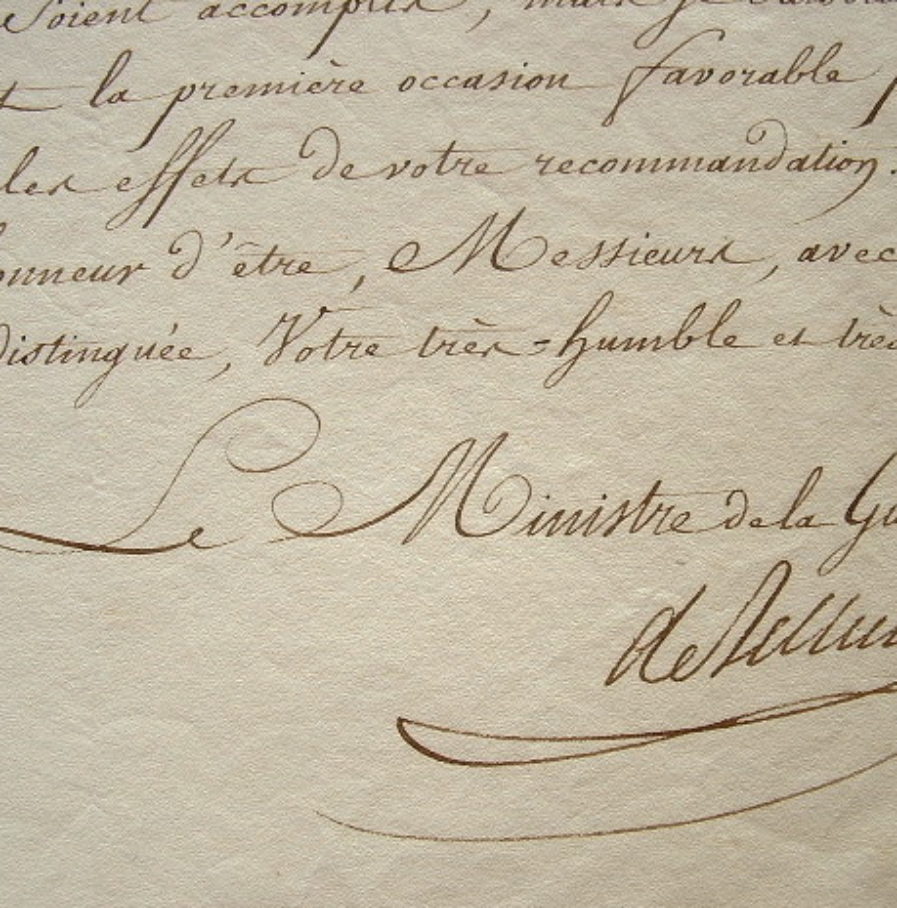 soient accomplis, mais je
la première occasion favorable
les effets de votre recommandation.
onneur d'être, Messieurs, avec
distinguée, Votre très=humble et très
Le Ministre de la Gu